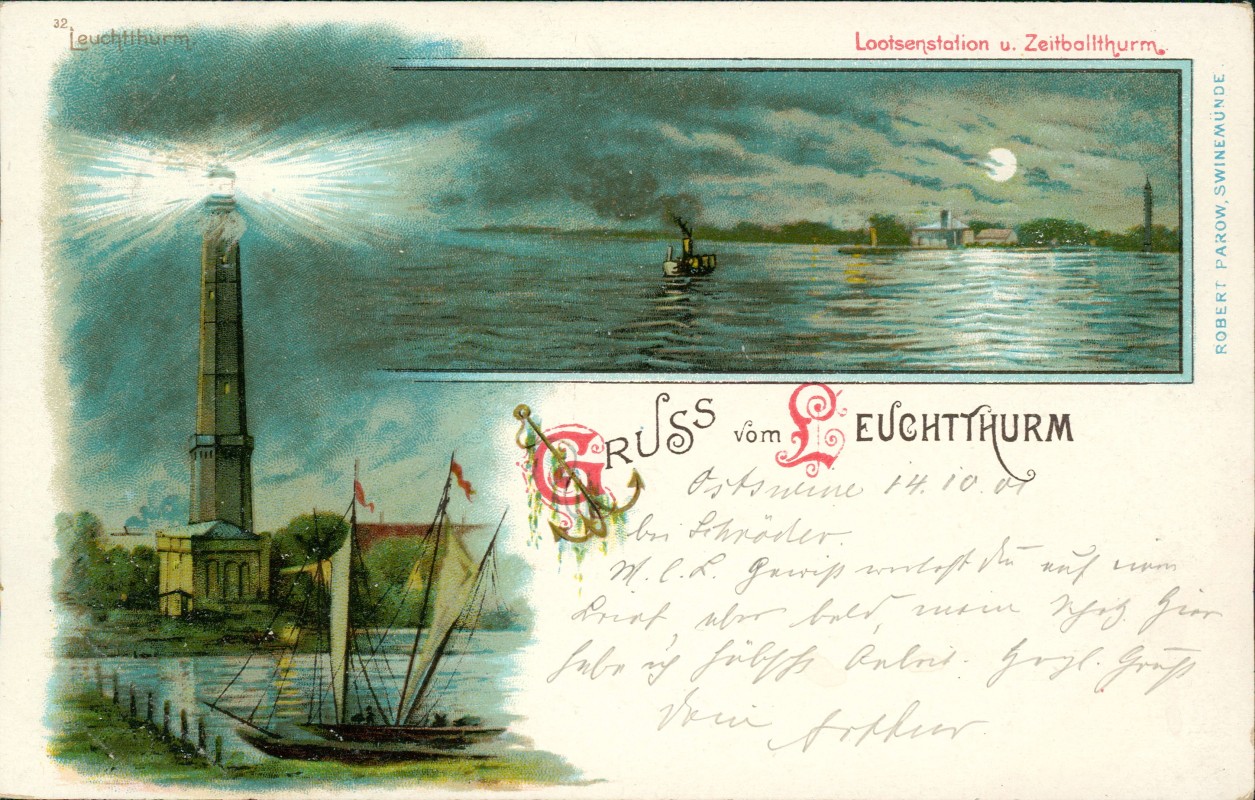 32.
Leuchtthurm.
Lootsenstation u. Zeitballthurm.
ROBERT PAROW, SWINEMÜNDE.
GRUSS vom LEUCHTTHURM
Ostswine 14.10.01
bei Schröder.
M. l. L. Gewiß du auf einen
Brief aber bald, mein Schatz. Hier
habe ich hübsche Arbeit. Herzl. Gruß
Dein Arthur.